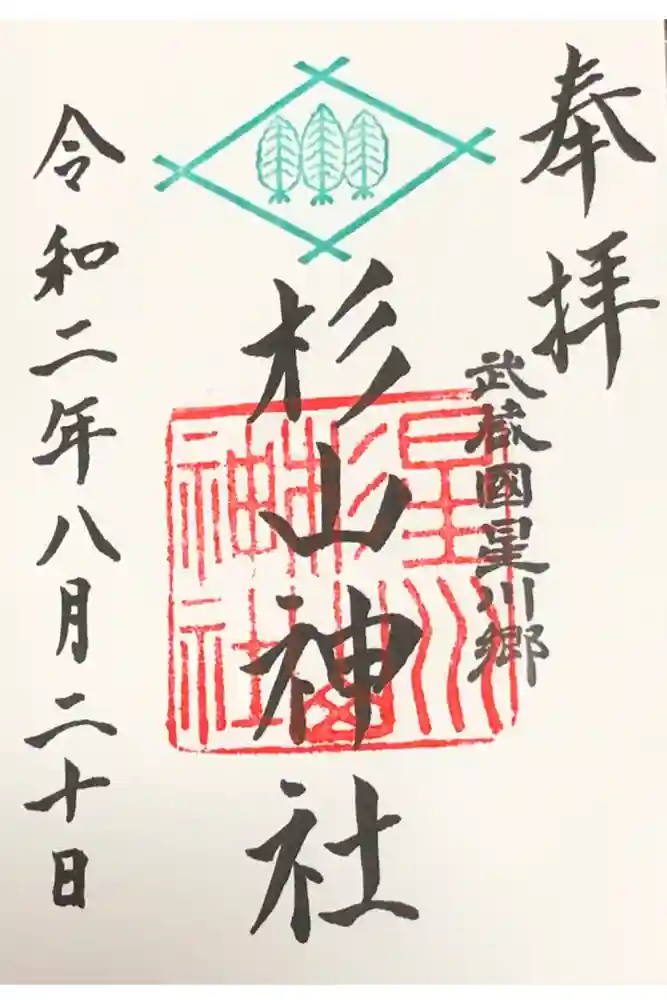 奉拝
武蔵國星川郷
杉山神社
星川
杉山
神社
令和二年八月二十日